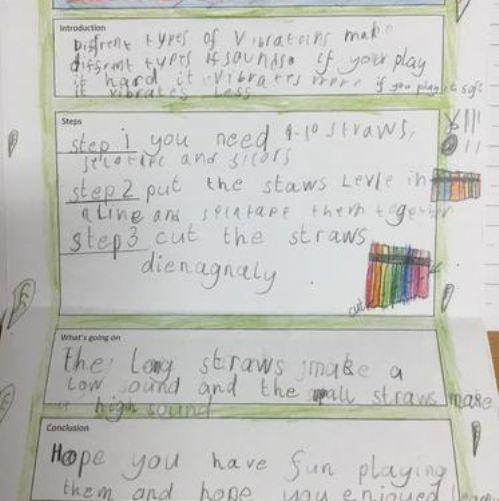 Introduction
Diffrent types of Vibrateins make
diffrent types of sounds. if your play
it hard it vibrates more if you play it soft
it vibrates less
Steps
step 1 you need 9-10 straws,
selotape and sicors
step 2 put the staws Levle in
a line and selatape them together
step 3 cut the straws
dienagnaly
cut
What's going on
the long straws make a
Low sound and the small straws make
a high sound
Conclusion
Hope you have fun playing
them and hope you enjoyed